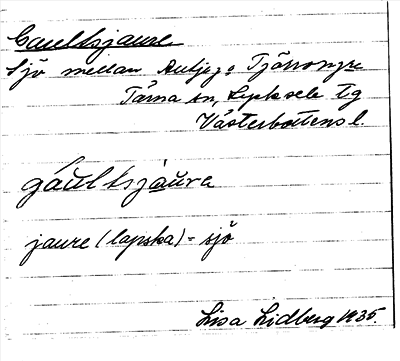 Gaultsjaure
Sjö mellan Autjej. o Tjärromyre
Tärna sn, Lycksele tg
Västerbottens l.
gáultsjaura
jaure (lapska) = sjö
Lisa Lidberg 1935